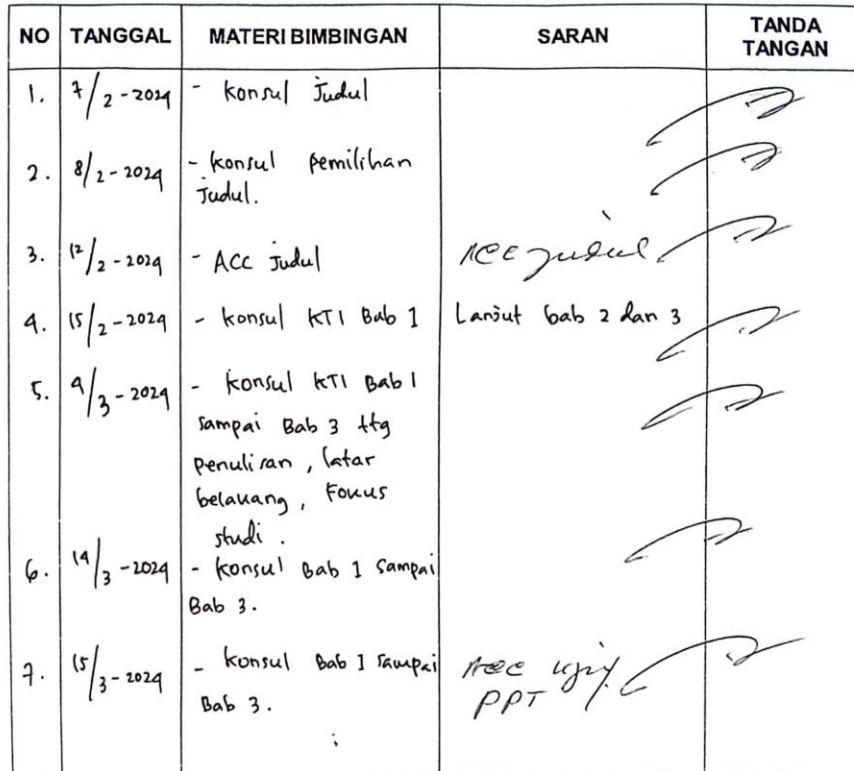 NO TANGGAL MATERI BIMBINGAN SARAN TANDA TANGAN
1. 7/2-2024 - konsul Judul
2. 8/2-2024 - konsul pemilihan
Judul.
3. 12/2-2024 - ACC Judul ACC Judul
4. 15/2-2024 - konsul KTI Bab 1 Lanjut bab 2 dan 3
5. 4/3-2024 - konsul KTI Bab 1
sampai Bab 3 ttg
penulisan, latar
belakang, Fokus
studi.
6. 14/3-2024 - konsul Bab 1 sampai
Bab 3.
7. 15/3-2024 - konsul Bab 1 sampai ACC
Bab 3. PPT